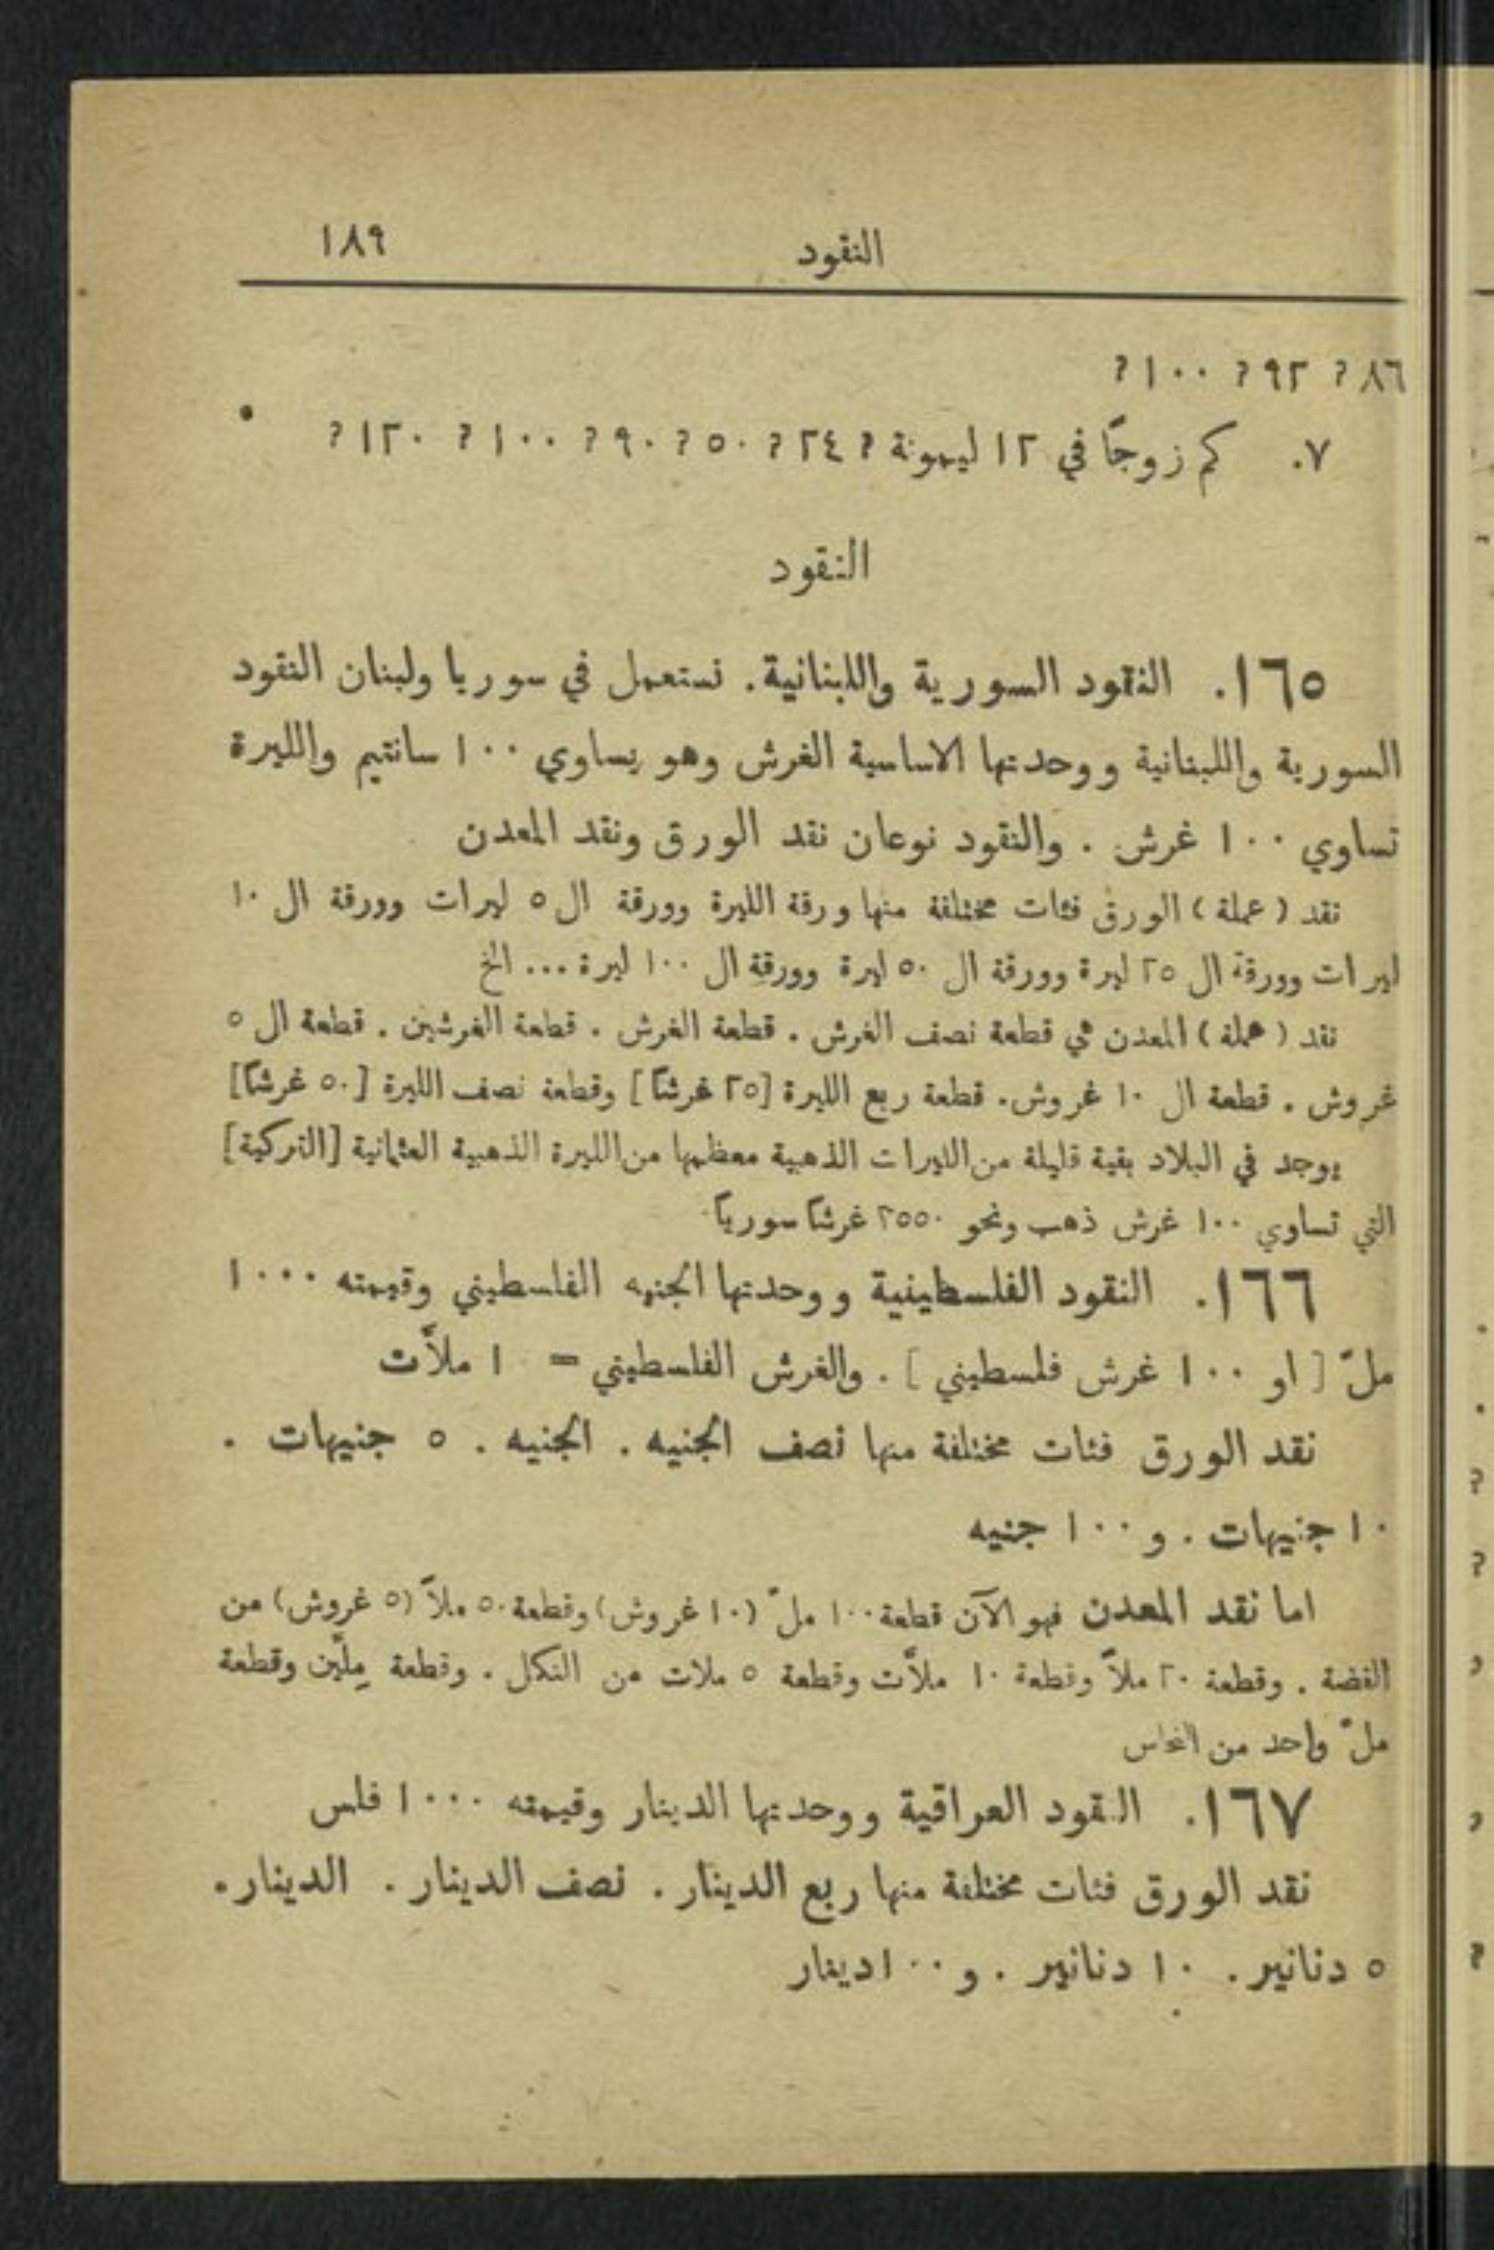 النقود ١٨٩
٨٦ ? ٩٢ ? ١٠٠ ?
٧. كم زوجًا في ١٢ ليمونة ? ٢٤ ? ٥٠ ? ٩٠ ? ١٠٠ ? ١٢٠ ?
النقود
١٦٥. النقود السورية واللبنانية. تستعمل في سوريا ولبنان النقود
السورية واللبنانية ووحدتها الاساسية الغرش وهو يساوي ١٠٠ سانتيم والليرة
تساوي ١٠٠ غرش . والنقود نوعان نقد الورق ونقد المعدن
نقد (عملة) الورق فئات مختلفة منها ورقة الليرة وورقة ال ٥ ليرات وورقة ال ١٠
ليرات وورقة ال ٢٥ ليرة وورقة ال ٥٠ ليرة وورقة ال ١٠٠ ليرة ... الخ
نقد (عملة) المعدن هي قطعة نصف الغرش . قطعة الغرش . قطعة الغرشين . قطعة ال ٥
غروش . قطعة ال ١٠ غروش. قطعة ربع الليرة [٢٥ غرشًا] وقطعة نصف الليرة [٥٠ غرشًا]
يوجد في البلاد بقية قليلة من الليرات الذهبية معظمها من الليرة الذهبية العثمانية [التركية]
التي تساوي ١٠٠ غرش ذهب ونحو ٢٥٥٠ غرشًا سوريًا
١٦٦. النقود الفلسطينية ووحدتها الجنيه الفلسطيني وقيمته ١٠٠٠
ملّ [ او ١٠٠ غرش فلسطيني ] . والغرش الفلسطيني = ١٠ ملاَّت
نقد الورق فئات مختلفة منها نصف الجنيه . الجنيه . ٥ جنيهات .
١٠ جنيهات . و ١٠٠ جنيه
اما نقد المعدن فهو الآن قطعة ١٠٠ ملّ (١٠ غروش) وقطعة ٥٠ ملاًّ (٥ غروش) من
الفضة . وقطعة ٢٠ ملاًّ وقطعة ١٠ ملاَّت وقطعة ٥ ملات من النكل . وقطعة مِلَّين وقطعة
ملّ واحد من النحاس
١٦٧. النقود العراقية ووحدتها الدينار وقيمته ١٠٠٠ فلس
نقد الورق فئات مختلفة منها ربع الدينار . نصف الدينار . الدينار.
٥ دنانير . ١٠ دنانير . و ١٠٠ دينار